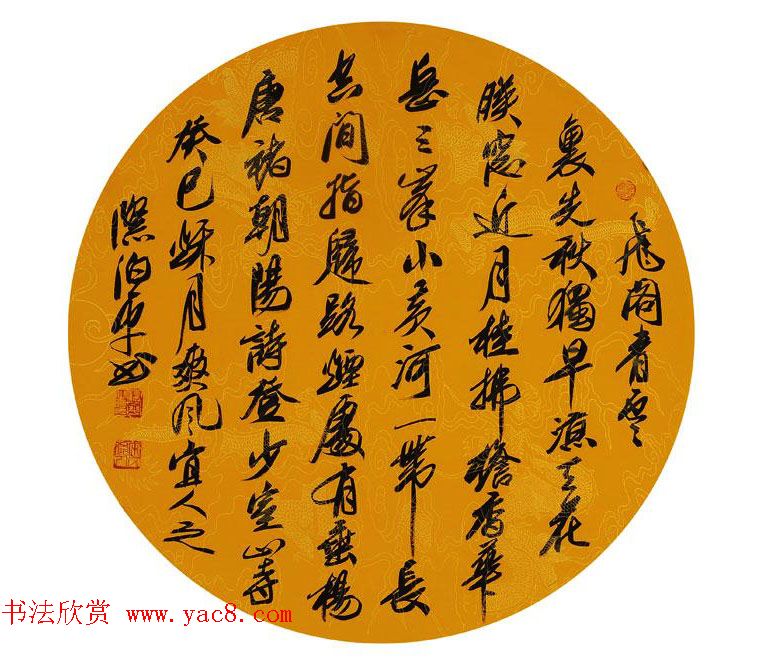 飛阁青霞
裏先秋獨早凉天花
映窓近月桂拂檐香華
岳三峯小黄河一帶長
空間指歸路煙處有垂楊
唐褚朝陽詩登少室山寺
癸巳秌月爽風宜人之
際泊平书
书法欣赏 www.yac8.com